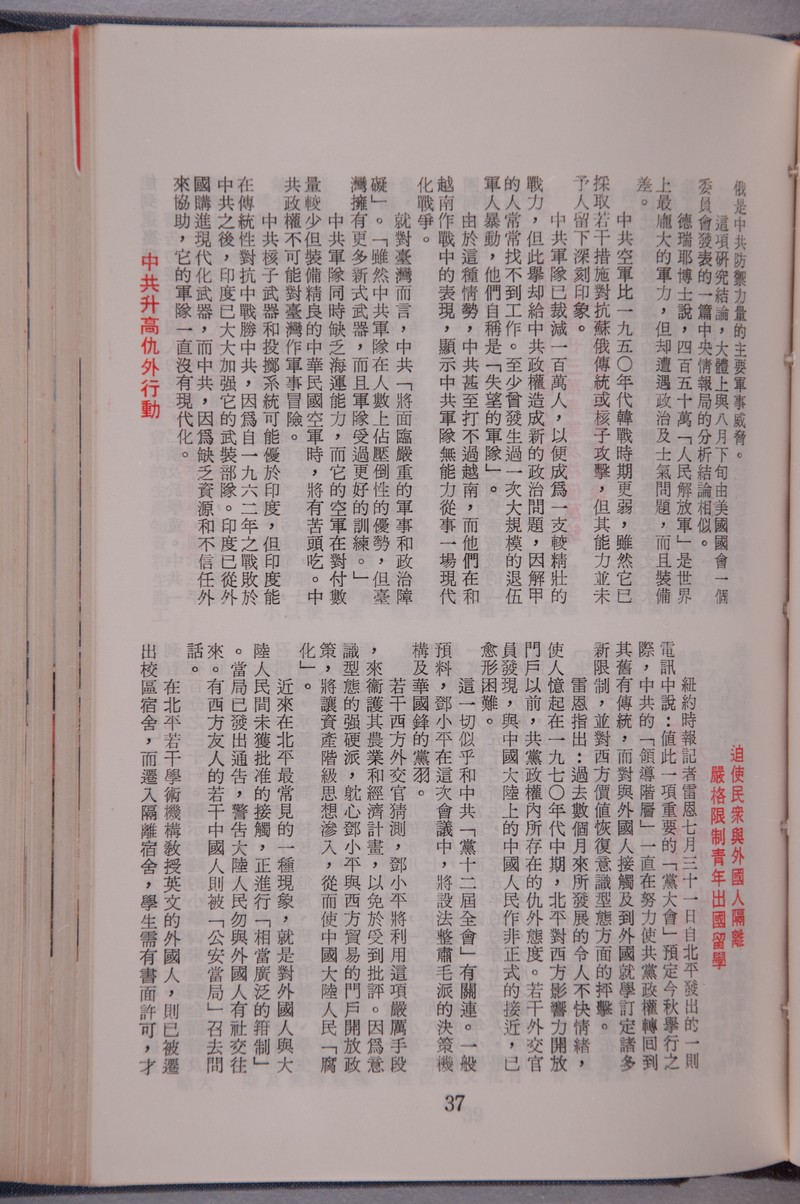 俄是中共防禦力量的主要軍事威脅。
這項研究結論，大體上與八月下旬由美國國會一個
委員會發表的一篇中央情報局的分析結論相似。
德瑞耶博士說，四百五十萬「人民解放軍」是世界
上最龐大的軍力，但却遭遇政治及士氣問題，而且裝備
差。
中共空軍比一九五〇年代韓戰時期更弱，雖然它已
採取若干措施對抗蘇俄傳統或核子攻擊，但其能力並未
予人留下深刻印象。
中共軍隊已裁減一百萬人，以便成爲一支較精壯的
戰力，但此舉却給中共政權造成新的政治問題，因解甲
的人常常找不到工作。至少曾發生過一次大規模的退伍
軍人暴動，他們自稱是「失望的軍隊」。
由於這種情勢，中共甚至打不過越南，而他們在和
越南作戰中的表現，顯示中共軍隊無能力從事一場現代
化戰爭。
就對臺灣而言，中共「將面臨嚴重的軍事和政治障
礙」。「雖然中共軍隊在人數上佔壓倒性的優勢，但臺
灣擁有更多新式武器，而且軍隊受過更好的訓練。」
中共軍隊同時缺乏海運能力，而它的空軍在對付數
量較少但裝備精良的中華民國空軍時，將有苦頭吃。中
共政權不可能對臺灣作軍事冒險。
中共核子武器和投擲系統可能優於印度，但印度能
在傳統性對抗中戰勝中共，因爲自一九六二年之戰敗於
中共之後，印度已大大加强它的武裝部隊。印度已從外
國購進現代化武器，而中共，因爲缺乏資源和不信任外
來協助，它的軍隊一直沒有現代化。
中共升高仇外行動
迫使民衆與外國人隔離
嚴格限制青年出國留學
紐約時報記者雷恩七月三十一日自北平發出的一則
電訊中說：值此一項重要的「黨大會」預定今秋舉行之
際，中共的「領導階層」一直在努力使共黨政權轉回到
其舊有傳統，而對與外國人接觸及到外國就學訂定諸多
新限制，並對西方價值恢復意識型態方面的抨擊。
雷恩指出：過去數個月來所發展的令人不快情緒，
使人憶起在一九七〇年代中期，北平對西方影響力開放
門戶以前，共黨政權內所存在的仇外態度。若干外交官
員發現，與中國大陸上的中國人民作非正式的接近，已
愈形困難。
這一切似乎和中共「黨十二屆全會」有關連。一般
預料，鄧小平在這次會議中，將設法整肅毛派的決策機
構及華國鋒的黨羽。
若干西方外交官猜測，鄧小平將利用這項嚴厲手段
，來衞護其農業和經濟計畫，以免於受到批評。因爲意
識型態的强硬派，躭心鄧小平與西方貿易的門戶開放政
策，將讓資產階級思想滲入，從而使中國大陸人民「腐
化」。
近來在北平最常見的一種現象，就是對外國人與大
陸人民間未獲批准的接觸，正進行「相當廣泛的箝制」
。當局已發出通告，警告大陸人民勿與外國人有社交往
來。有西方友人的若干中國人則被「公安當局」召去問
話。
在北平若干學術機構教授英文的外國人，則已被遷
出校區宿舍，而遷入隔離宿舍，學生需有書面許可，才
37